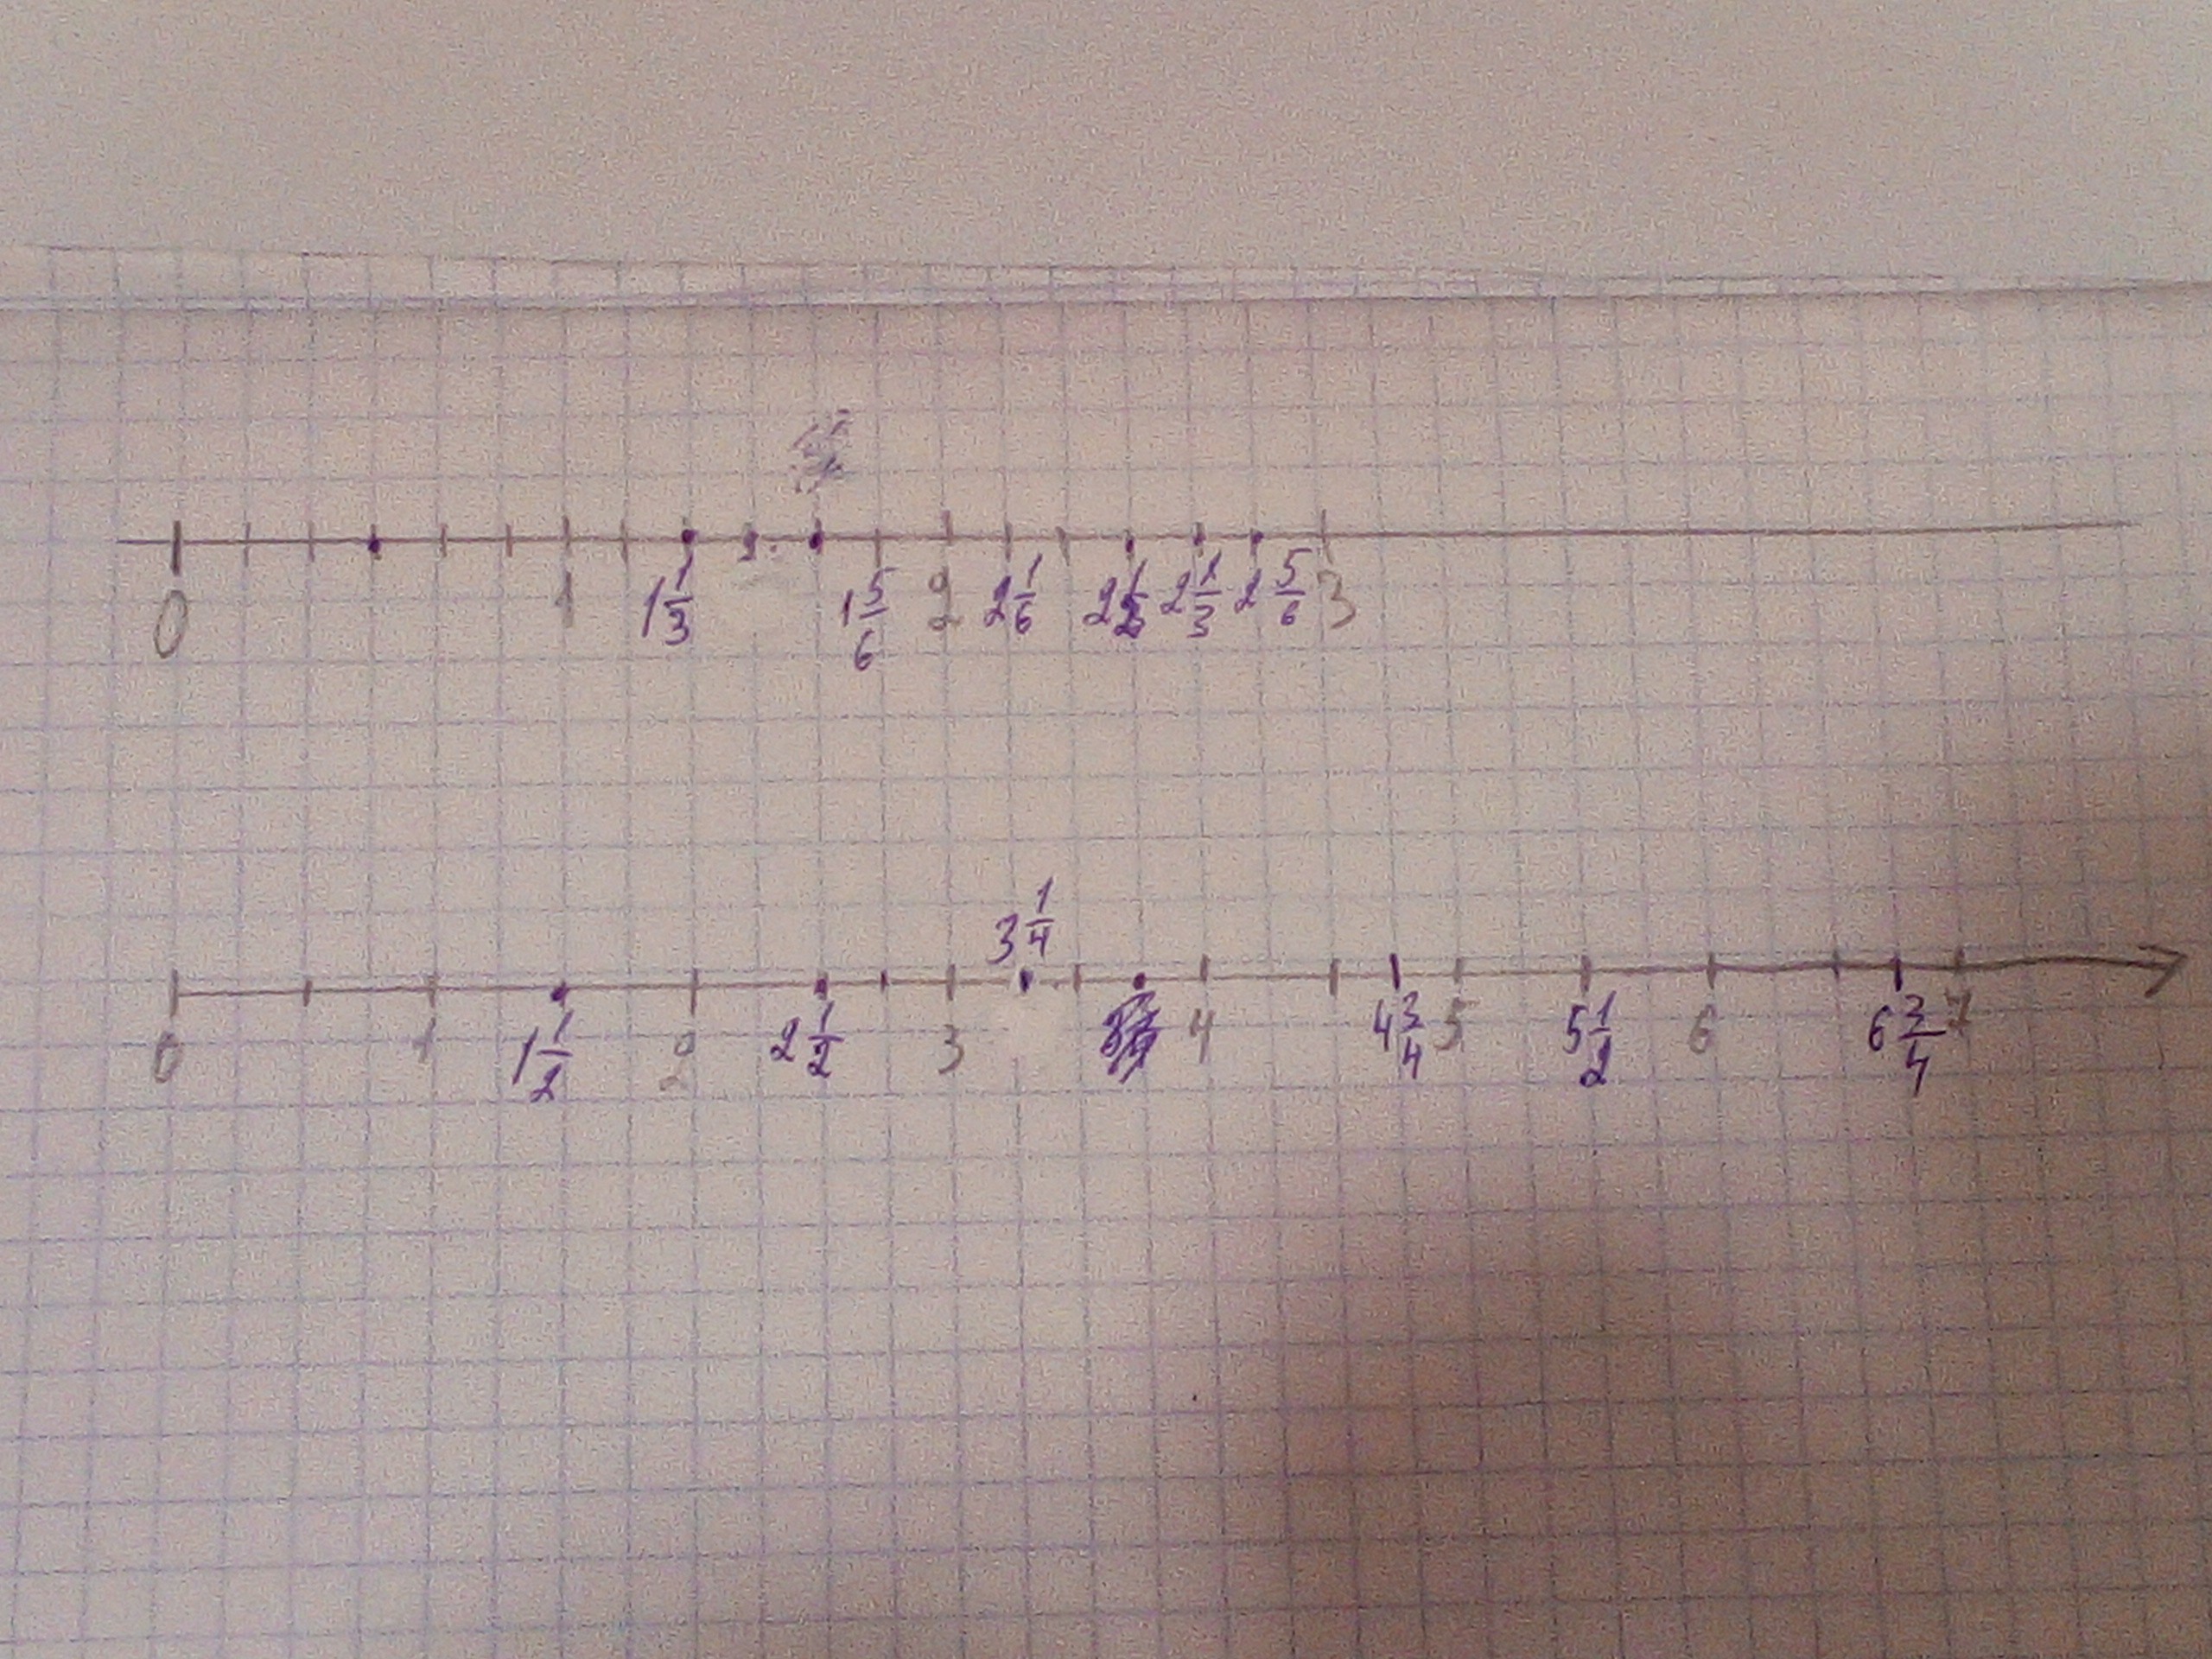 0 1 1 1/3 1 5/6 2 2 1/6 2 1/2 2 1/3 2 5/6 3
6
3 1/4
0 1 1 1/2 2 2 1/2 3 4 4 3/4 5 5 1/2 6 6 3/4 7